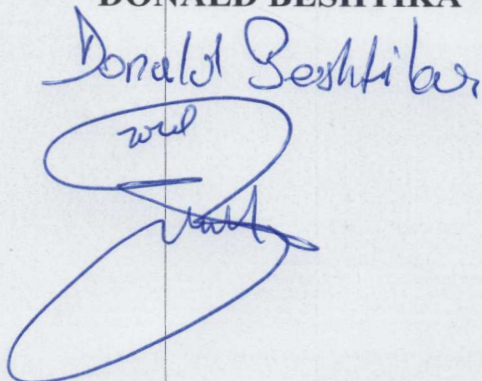 DONALD BESHTIKA
Donald Beshtika